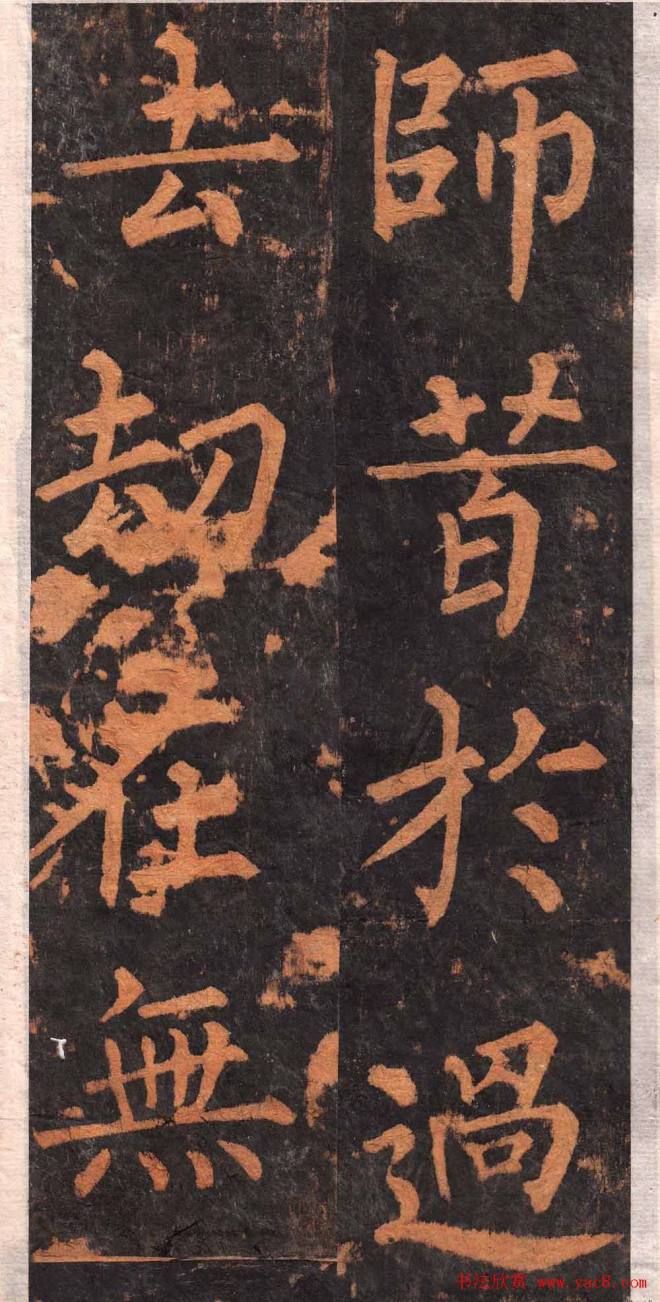 師昔於過
去劫在無
书法欣赏 www.yac8.com